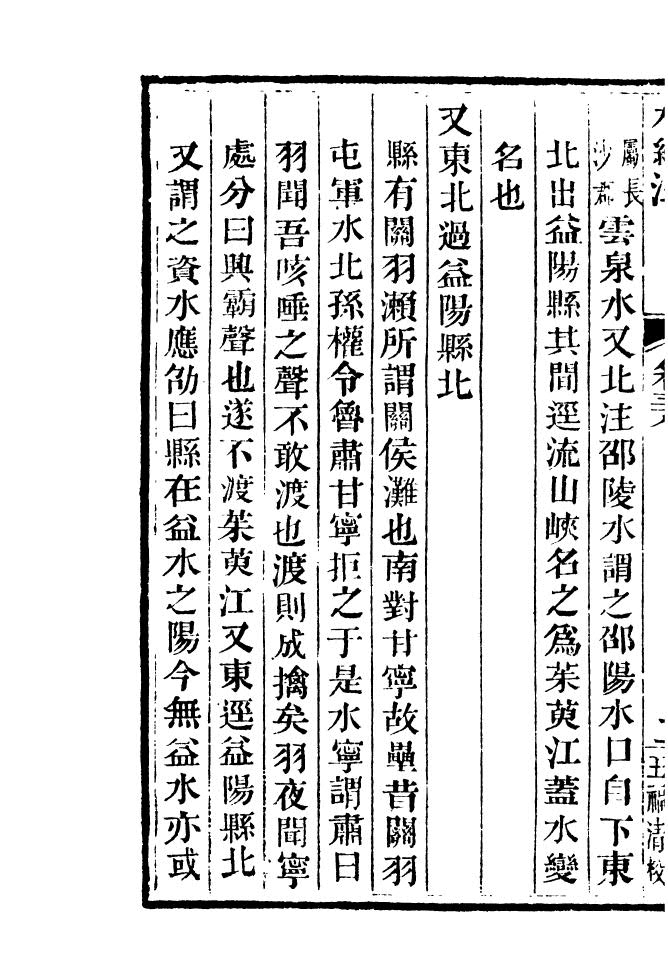 水經注
卷三
王福清校
屬長
沙郡
雲泉水又北注邵陵水謂之邵陽水口自下東
北出益陽縣其間逕流山峽名之爲茱萸江蓋水變
名也
又東北過益陽縣北
縣有關羽瀨所謂關侯灘也南對甘寧故壘昔關羽
屯軍水北孫權令魯肅甘寧拒之于是水寧謂肅曰
羽聞吾咳唾之聲不敢渡也渡則成擒矣羽夜聞寧
處分曰興霸聲也遂不渡茱萸江又東逕益陽縣北
又謂之資水應劭曰縣在益水之陽今無益水亦或